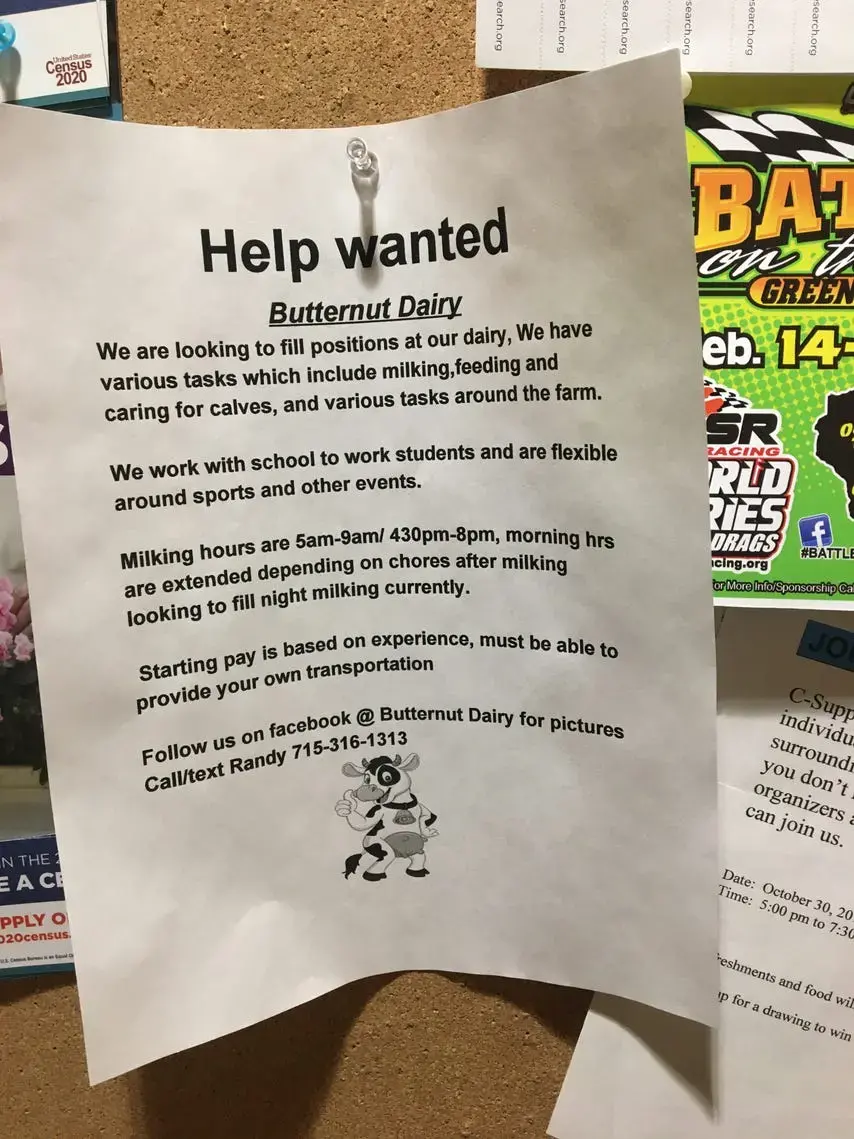 United States
Census
2020
search.org
search.org
search.org
search.org
search.org
Help wanted
Butternut Dairy
We are looking to fill positions at our dairy, We have
various tasks which include milking,feeding and
caring for calves, and various tasks around the farm.
We work with school to work students and are flexible
around sports and other events.
Milking hours are 5am-9am/ 430pm-8pm, morning hrs
are extended depending on chores after milking
looking to fill night milking currently.
Starting pay is based on experience, must be able to
provide your own transportation
Follow us on facebook @ Butternut Dairy for pictures
Call/text Randy 715-316-1313
BAT
on th
GREEN
eb. 14-
SR
RACING
RLD
RIES
DRAGS
cing.org
f
#BATTLE
or More Info/Sponsorship Ca
JO
C-Supp
individu
surround
you don't
organizers a
can join us.
Date: October 30, 20
Time: 5:00 pm to 7:30
freshments and food wil
up for a drawing to win
S
IN THE 2
E A CE
PPLY O
020census.
U.S. Census Bureau is an Equal